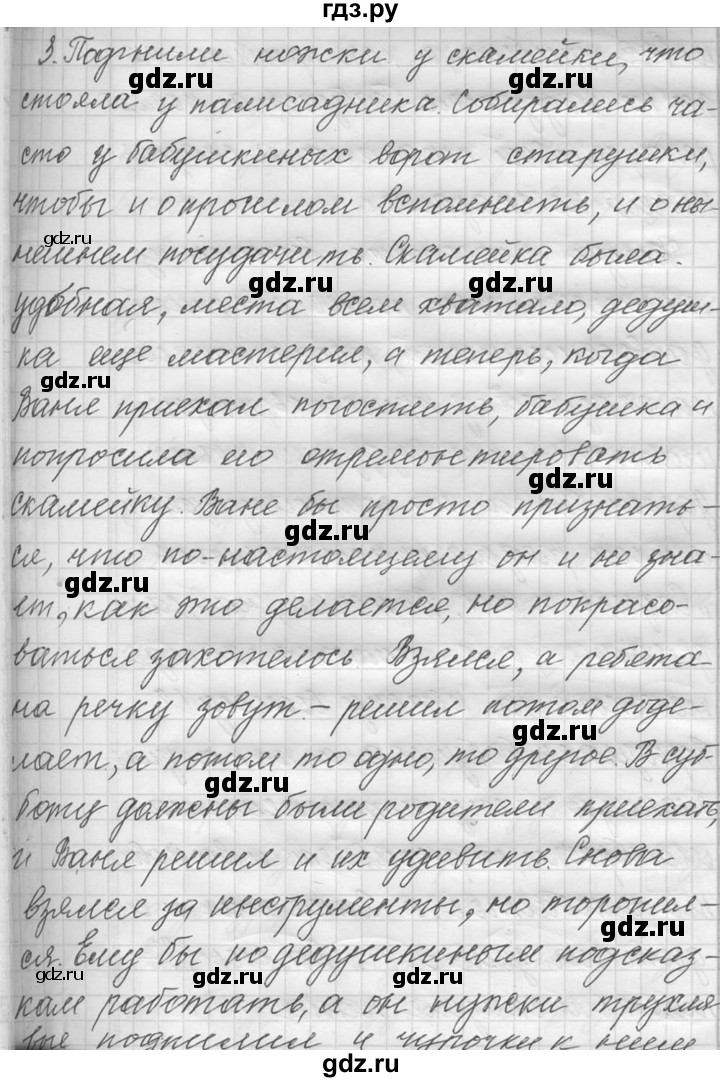 гдз.ру
3. Подгнили ножки у скамейки, что
gdz.ru
gdz.ru
стояла у палисадника. Собирались ча-
сто у бабушкиных ворот старушки,
чтобы и о прошлом вспомнить, и о ны-
gdz.ru
нешнем посудачить. Скамейка была
gdz.ru
удобная, места всем хватало, дедуш-
ка еще мастерил, а теперь, когда
gdz.ru
Ваня приехал погостить, бабушка и
попросила его отремонтировать
gdz.ru
скамейку. Ване бы просто признать-
gdz.ru
ся, что по-настоящему он и не зна-
gdz.ru
ет, как это делается, но покрасо-
ваться захотелось. Взялся, а ребята
на речку зовут – решил потом доде-
gdz.ru
лает, а потом то одно, то другое. В суб-
gdz.ru
боту должны были родители приехать,
и Ваня решил и их удивить. Снова
взялся за инструменты, но торопил-
gdz.ru
ся. Ему бы по дедушкиным подсказ-
gdz.ru
gdz.ru
кам работать, а он ножки трухля
вые подпилил и чурочки к ним
gdz.ru